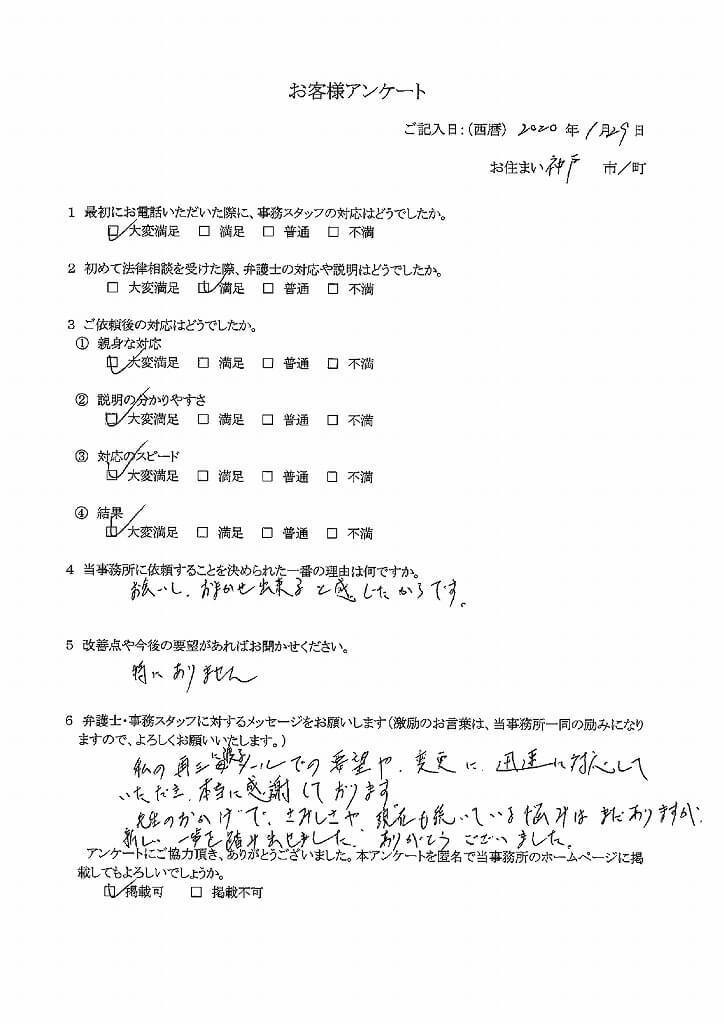 お客様アンケート
ご記入日:(西暦) 2020 年 1月29日
お住まい 神戸 市/町
1 最初にお電話いただいた際に、事務スタッフの対応はどうでしたか。
☑ 大変満足 □ 満足 □ 普通 □ 不満
2 初めて法律相談を受けた際、弁護士の対応や説明はどうでしたか。
□ 大変満足 ☑ 満足 □ 普通 □ 不満
3 ご依頼後の対応はどうでしたか。
① 親身な対応
☑ 大変満足 □ 満足 □ 普通 □ 不満
② 説明の分かりやすさ
☑ 大変満足 □ 満足 □ 普通 □ 不満
③ 対応のスピード
☑ 大変満足 □ 満足 □ 普通 □ 不満
④ 結果
☑ 大変満足 □ 満足 □ 普通 □ 不満
4 当事務所に依頼することを決められた一番の理由は何ですか。
お会いし、おまかせ出来ると感じたからです。
5 改善点や今後の要望があればお聞かせください。
特にありません
6 弁護士・事務スタッフに対するメッセージをお願いします(激励のお言葉は、当事務所一同の励みになり
ますので、よろしくお願いいたします。)
私の再三に渡るメールでの要望や、変更に、迅速に対応して
いただき、本当に感謝しております
先生のおかげで、さみしさや、現在も続いている悩みはまだありますが、
新しい一歩を踏み出せました。ありがとうございました。
アンケートにご協力頂き、ありがとうございました。本アンケートを匿名で当事務所のホームページに掲
載してもよろしいでしょうか。
☑ 掲載可 □ 掲載不可